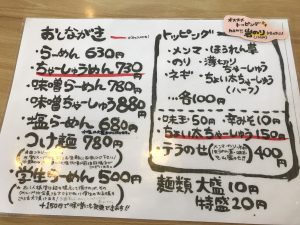 おしながき
・らーめん 630円
・ちゃーしゅうめん 730円
・味噌らーめん 780円
・味噌ちゃーしゅう 880円
・塩らーめん 680円
・つけ麺 780円
・学生らーめん 500円
トッピング
オススメトッピング
岩のり
・メンマ ・ほうれん草
・のり ・薄切りちゃーしゅう
・ネギ ・ちょい太ちゃーしゅう
(ハーフ)
...各100円
・味玉50円 ・辛みそ10円
・ちょい太ちゃーしゅう150円
・テラのせ 400円
麺類大盛10円
特盛20円